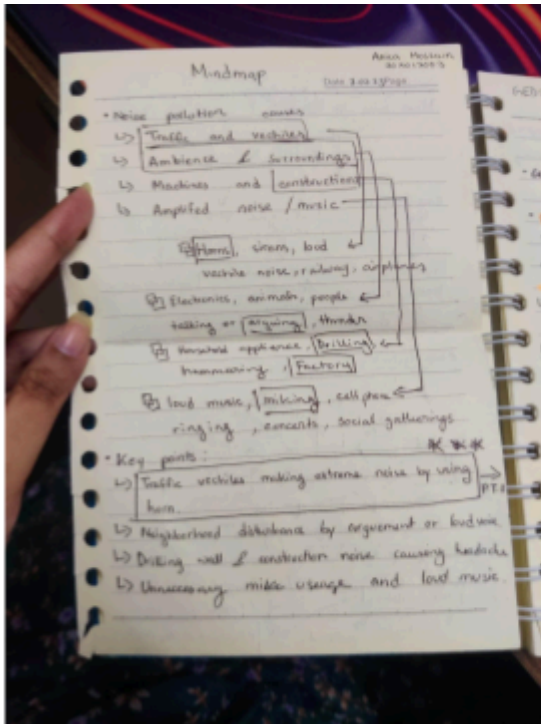 Mindmap
• Noise pollution causes
↳ Traffic and vechiles
↳ Ambience & Surroundings
↳ Machines and constructions
↳ Amplifed noise / music
Horns, sirens, loud
vechile noise, railway, airplanes
Electronics, animals, people
talking or arguing, thunder
Household appliance, Drilling,
hammering, Factory
loud music, miking, cell phone
ringing, concerts, social gatherings
• Key points:
↳ Traffic vechiles making extreme noise by using
horn.
PT.1
↳ Neighborhood disturbance by arguement or loud voice
↳ Drilling wall & construction noise causing headache
↳ Unnecessary mike useage and loud music.